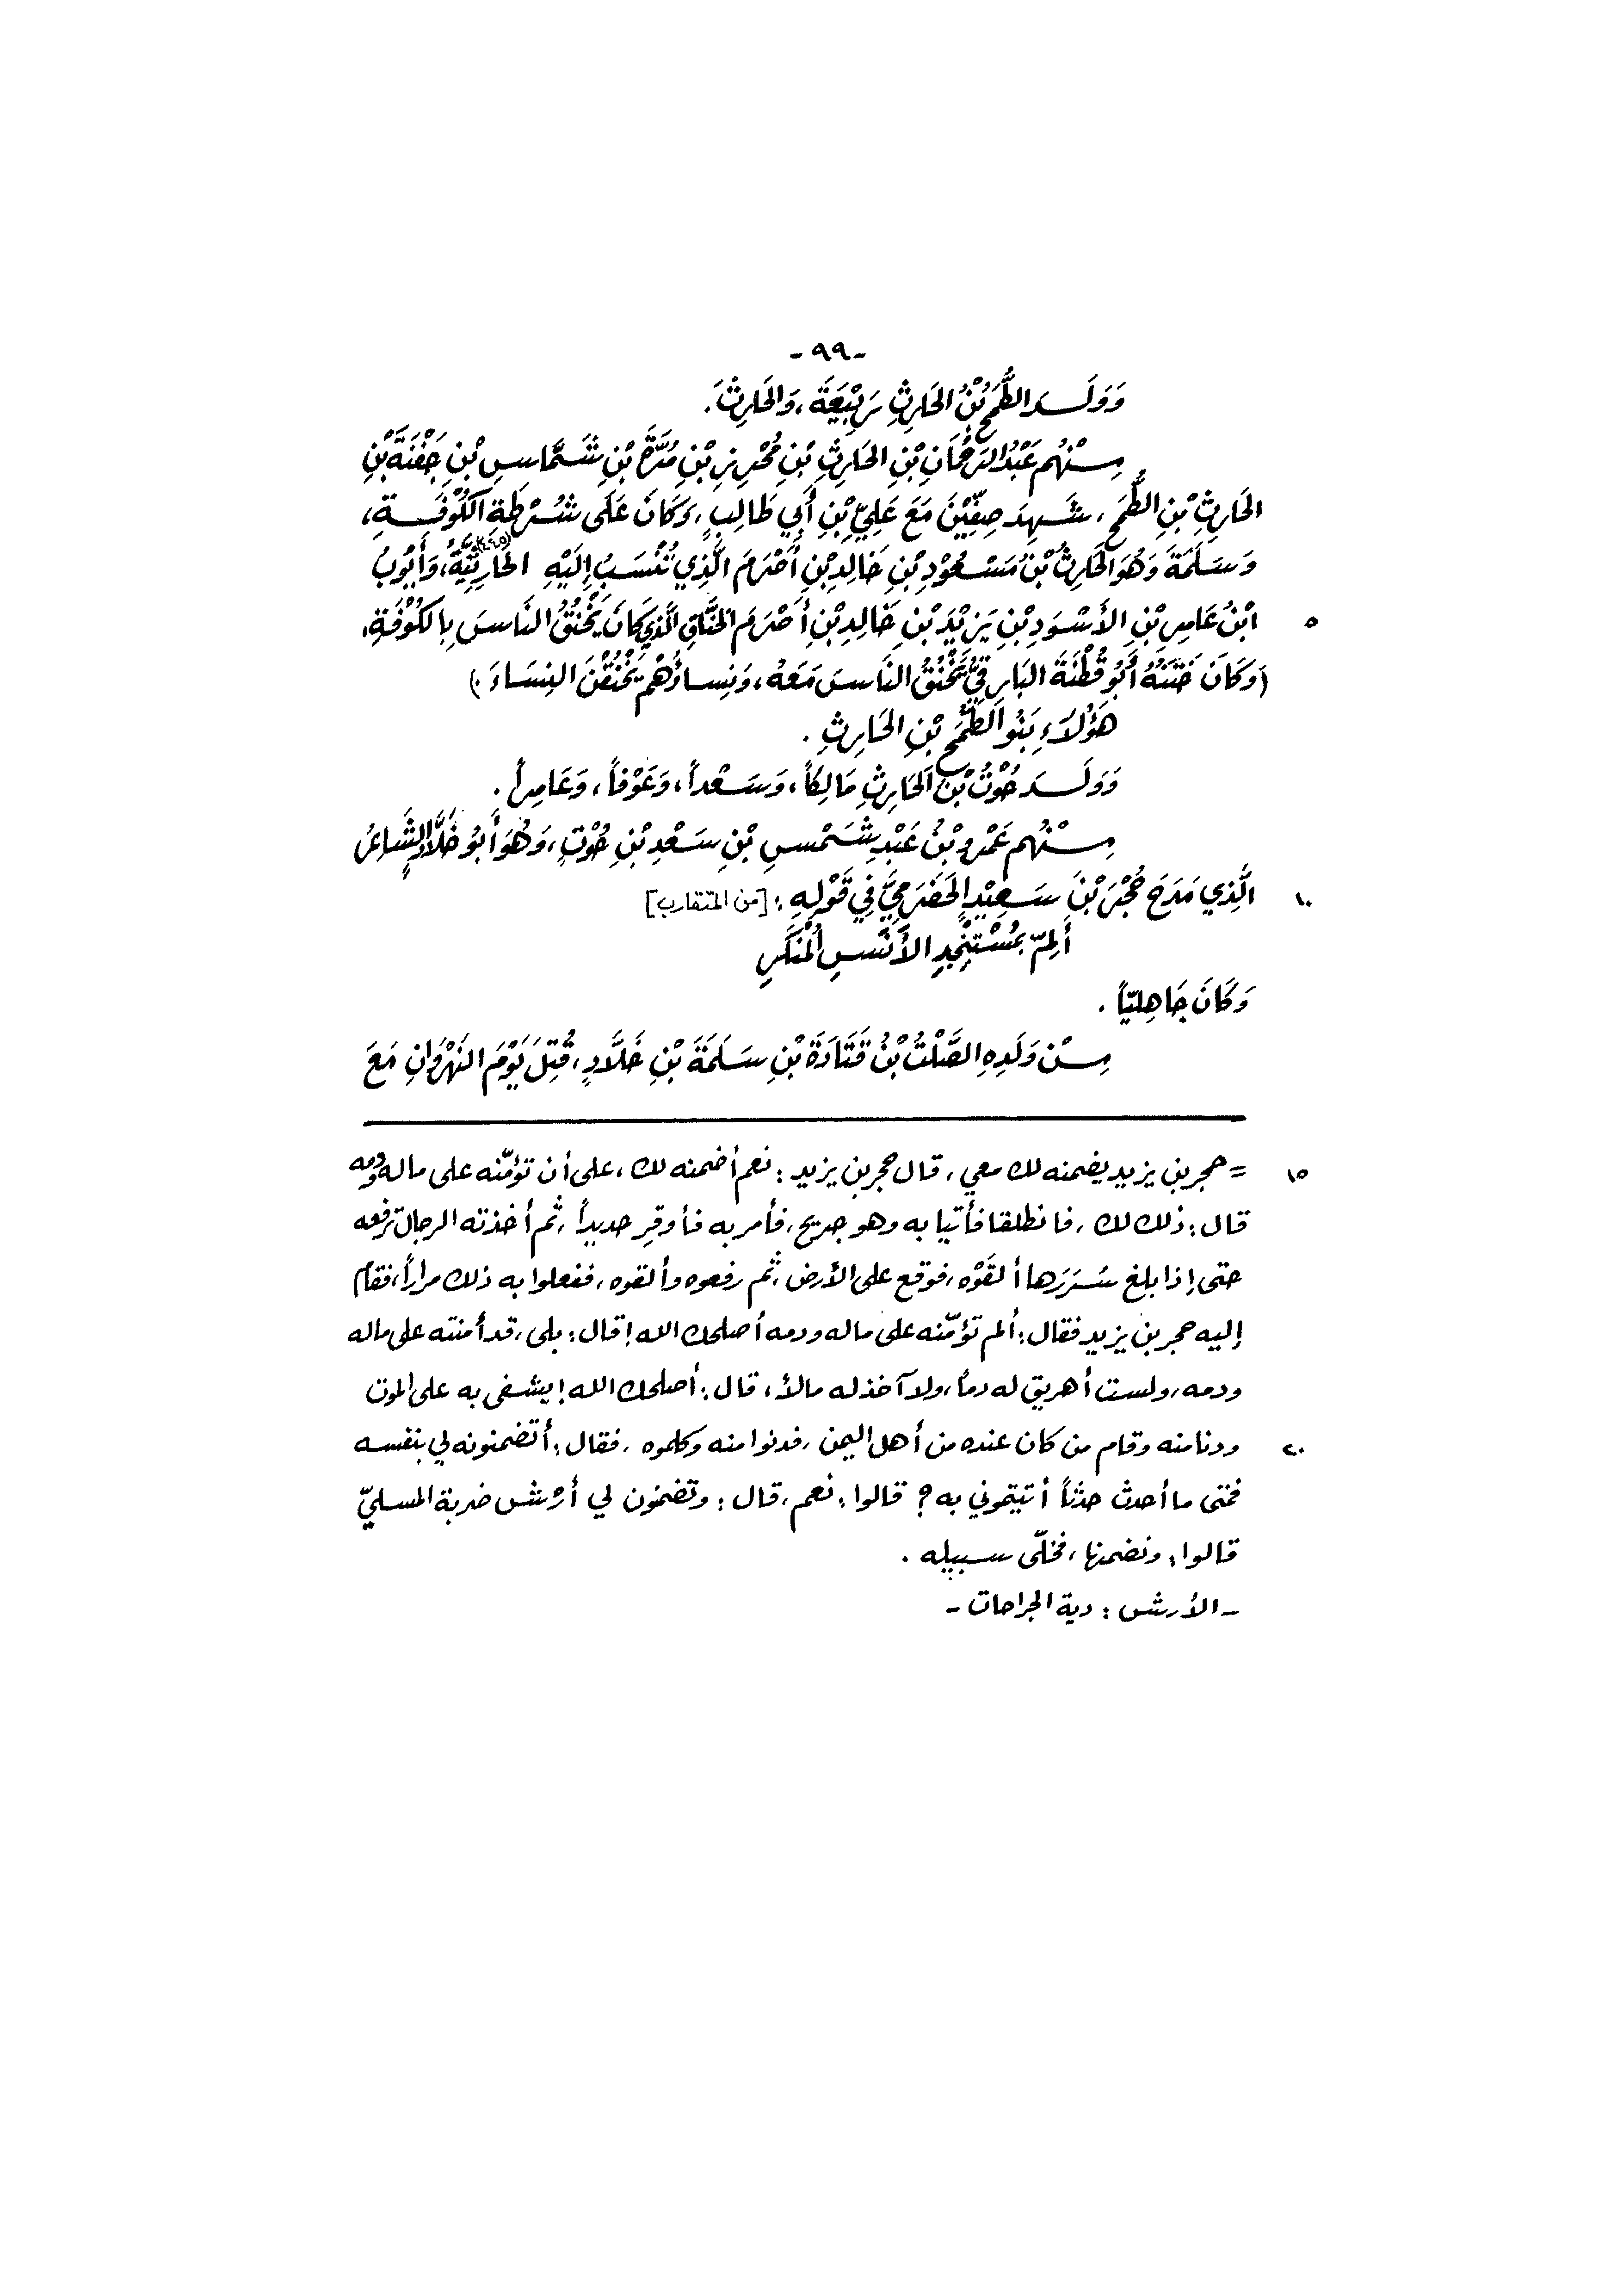 -٩٩-
وَوَلَـدَ الطُّمَحُ بْنُ الحَارِثِ رَبِيْعَةَ، وَالحَارِثَ.
مِـنْهُم عَبْدُ الرَحْمَانِ بْنِ الحَارِثِ بْنِ مُحْرِزِ بْنِ مُرَّةَ بْنِ شَمَّاسِ بْنِ جَفْنَةَ بْنِ
الحَارِثِ بْنِ الطُّمَحِ، شَـهِدَ صِفِّيْنَ مَعَ عَلِيِّ بْنِ أَبِي طَالِبٍ، وَكَانَ عَلَى شُرْطَةِ الكُوْفَـةِ،
وَسَلَمَةَ وَهُوَ الحَارِثُ بْنُ مَسْعُوْدِ بْنِ خَالِدِ بْنِ أَصْرَمَ الَّذِي تُنْسَبُ إِلَيْهِ الحَارِثِيَّةُ، وَأَيُّوبُ
٥ ابْنُ عَامِرِ بْنِ الأَسْوَدِ بْنِ يَزِيْدَ بْنِ خَالِدِ بْنِ أَصْرَمَ الخَنَّاقِ الَّذِي كَانَ يَخْنُقُ النَاسَ بِالكُوْفَةِ،
(وَكَانَ خَتَنَهُ أَبُو قُطْنَةَ البَارِقِيُّ يَخْنُقُ النَاسَ مَعَهُ، وَنِسَاؤُهُمْ يَخْنُقْنَ النِسَاءَ.)
هَؤُلَاءِ بَنُو الطُّمَحِ بْنِ الحَارِثِ.
وَوَلَـدَ حُوْتُ بْنُ الحَارِثِ مَالِكاً، وَسَـعْداً، وَعَوْفاً، وَعَامِراً.
مِـنْهُم عَمْرُو بْنُ عَبْدِ شَمْسِ بْنِ سَعْدِ بْنِ حُوْتٍ، وَهُوَ أَبُو خَلَّادٍ الشَّاعِرُ
١٠ الَّذِي مَدَحَ حُجْرَ بْنَ سَعِيْدٍ الحَضْرَمِيَّ فِي قَوْلِهِ: [من المتقارب]
أَلِمّ بمُسْتَنْجِدِ الأَنَسِ المُنْكَرِ
وَكَانَ جَاهِلِيّاً.
مِـنْ وَلَدِهِ الصَّلْتُ بْنُ قَتَادَةَ بْنِ سَلَمَةَ بْنِ خَلَّادٍ، قُتِلَ يَوْمَ النَهْرَوَانِ مَعَ
١٥ = حجر بن يزيد يضمنه لك معي، قال حجر بن يزيد: نعم أضمنه لك، على أن تؤمّنه على ماله ودمه
قال: ذلك لك، فانطلقا فأتيا به وهو جريح، فأمر به فأوقِر حديداً، ثم أخذته الرجال ترفعه
حتى إذا بلغ سُرَرَها ألقَوْه، فوقع على الأرض، ثم رفعوه وألقوه، ففعلوا به ذلك مراراً، فقام
إليه حجر بن يزيد فقال: ألم تؤمّنه على ماله ودمه أصلحك الله! قال: بلى، قد أمنته على ماله
ودمه، ولست أهريق له دماً، ولا آخذ له مالاً، قال: أصلحك الله! يشفى به على الموت
٢٠ ودنا منه وقام من كان عنده من أهل اليمن، فدنوا منه وكلموه، فقال: أتضمنونه لي بنفسه
فمتى ما أحدث حدثاً أتيتموني به؟ قالوا: نعم، قال: وتضمنون لي أرْش ضربة المسليّ
قالوا: ونضمنها، فخلّى سـبيله.
- الأرش: دية الجراحات -